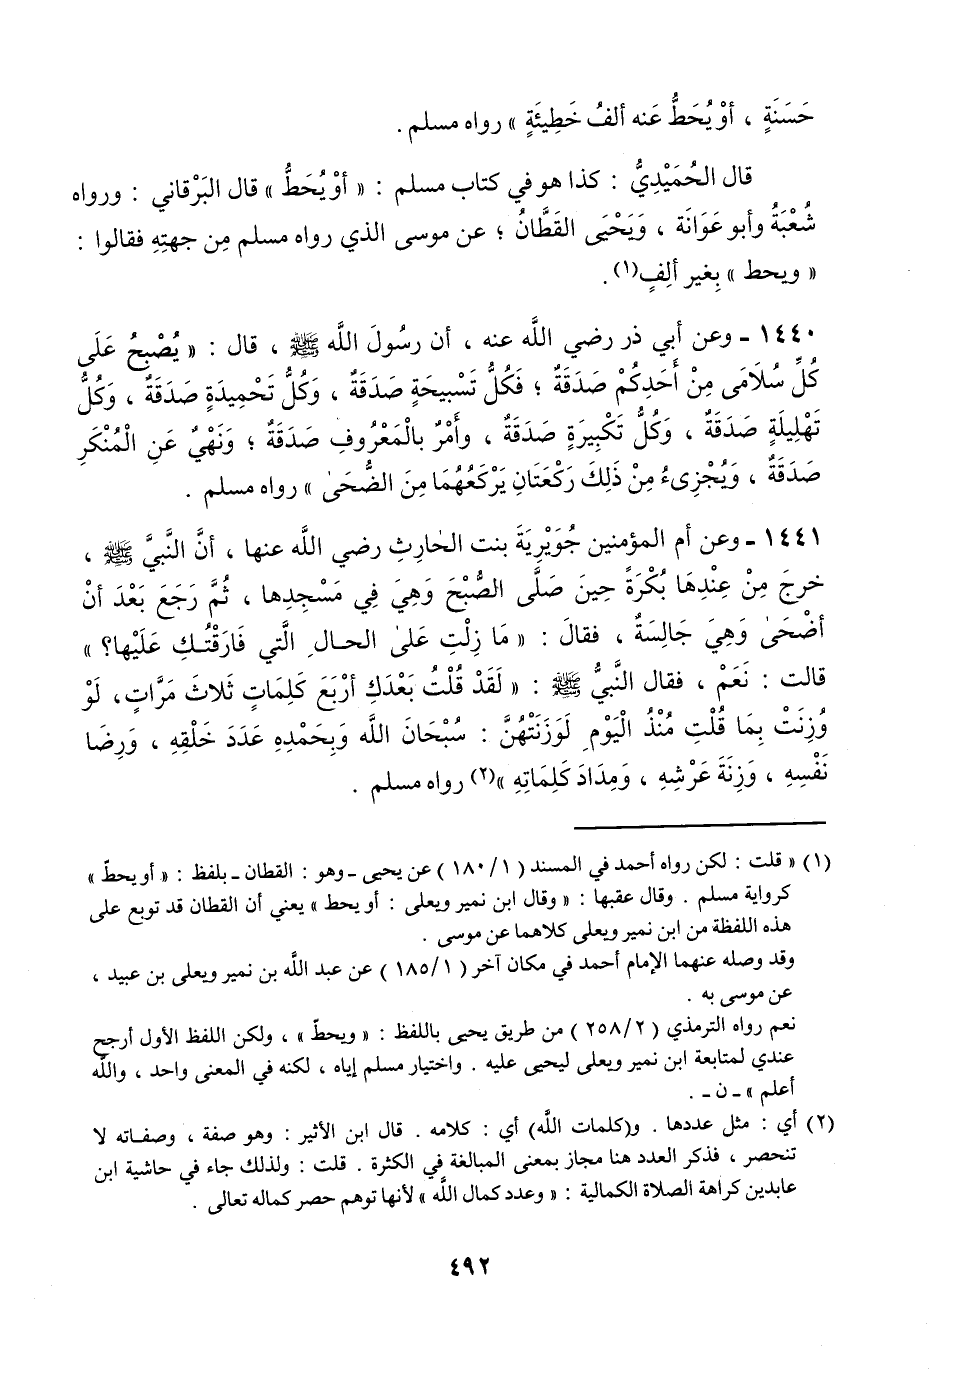 حَسَنَةٍ ، أوْ يُحَطُّ عَنه ألفُ خَطِيئَةٍ » رواه مسلم .
قال الحُمَيْدِيُّ : كذا هو في كتاب مسلم : « أوْ يُحَطُّ » قال البَرْقاني : ورواه
شُعْبَةُ وأبو عَوَانَة ، وَيَحْيَى القَطَّانُ ؛ عن موسى الذي رواه مسلم مِن جهتِهِ فقالوا :
« ويحط » بِغير ألِفٍ(١) .
١٤٤٠ ـ وعن أبي ذر رضي اللَّه عنه ، أن رسُولَ اللَّه ﷺ ، قال : « يُصْبِحُ عَلَى
كُلِّ سُلَامَى مِنْ أَحَدِكُمْ صَدَقَةٌ ؛ فَكُلُّ تَسْبيحَةٍ صَدَقَةٌ ، وَكُلُّ تَحْمِيدَةٍ صَدَقَةٌ ، وَكُلُّ
تَهْلِيلَةٍ صَدَقَةٌ ، وَكُلُّ تَكْبِيرَةٍ صَدَقَةٌ ، وأَمْرٌ بالْمَعْرُوفِ صَدَقَةٌ ؛ وَنَهْيٌ عَنِ الْمُنْكَرِ
صَدَقَةٌ ، وَيُجْزِىءُ مِنْ ذَلِكَ رَكْعَتَانِ يَرْكَعُهُمَا مِنَ الضُّحَىٰ » رواه مسلم .
١٤٤١ ـ وعن أم المؤمنين جُوَيْرِيَةَ بنت الحٰارِثِ رضي اللَّه عنها ، أنَّ النَّبيَّ ﷺ ،
خرجَ مِنْ عِنْدِهَا بُكْرَةً حِينَ صَلَّى الصُّبْحَ وَهِيَ فِي مَسْجِدِها ، ثُمَّ رَجَعَ بَعْدَ أنْ
أضْحَىٰ وَهِيَ جَالِسَةٌ ، فقالَ : « مَا زِلْتِ عَلىٰ الحـالِ الَّتي فَارَقْتُـكِ عَلَيْها؟ »
قالت : نَعَمْ ، فقال النَّبيُّ ﷺ : « لَقَدْ قُلْتُ بَعْدَكِ أرْبَعَ كَلِمَاتٍ ثَلاثَ مَرَّاتٍ، لَوْ
وُزِنَتْ بِمَا قُلْتِ مُنْذُ الْيَوْمِ لَوَزَنَتْهُنَّ : سُبْحَانَ اللَّه وَبِحَمْدِهِ عَدَدَ خَلْقِهِ ، وَرِضَا
نَفْسِهِ ، وَزِنَةَ عَرْشِهِ ، وَمِدَادَ كَلِمَاتِهِ »(٢) رواه مسلم .
(١) « قلت : لكن رواه أحمد في المسند ( ١٨٠/١ ) عن يحيى ـ وهو : القطان ـ بلفظ : « أو يحطّ »
كرواية مسلم . وقال عقبها : « وقال ابن نمير ويعلى : أو يحط » يعني أن القطان قد توبع على
هذه اللفظة من ابن نمير ويعلى كلاهما عن موسى .
وقد وصله عنهما الإمام أحمد في مكان آخر ( ١٨٥/١ ) عن عبد اللَّه بن نمير ويعلى بن عبيد ،
عن موسى به .
نعم رواه الترمذي ( ٢٥٨/٢ ) من طريق يحيى باللفظ : « ويحطّ » ، ولكن اللفظ الأول أرجح
عندي لمتابعة ابن نمير ويعلى ليحيى عليه . واختيار مسلم إياه ، لكنه في المعنى واحد ، واللَّه
أعلم » ـ ن ـ .
(٢) أي : مثل عددها . و(كلمات اللَّه) أي : كلامه . قال ابن الأثير : وهو صفة ، وصفـاته لا
تنحصر ، فذكر العدد هنا مجاز بمعنى المبالغة في الكثرة . قلت : ولذلك جاء في حاشية ابن
عابدين كراهة الصلاة الكمالية : « وعدد كمال اللَّه » لأنها توهم حصر كماله تعالى .
٤٩٢